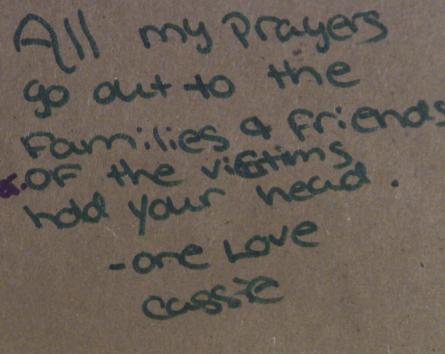 All my prayers
go out to the
Families & friends
OF the victims
hold your head.
-one Love
cassie